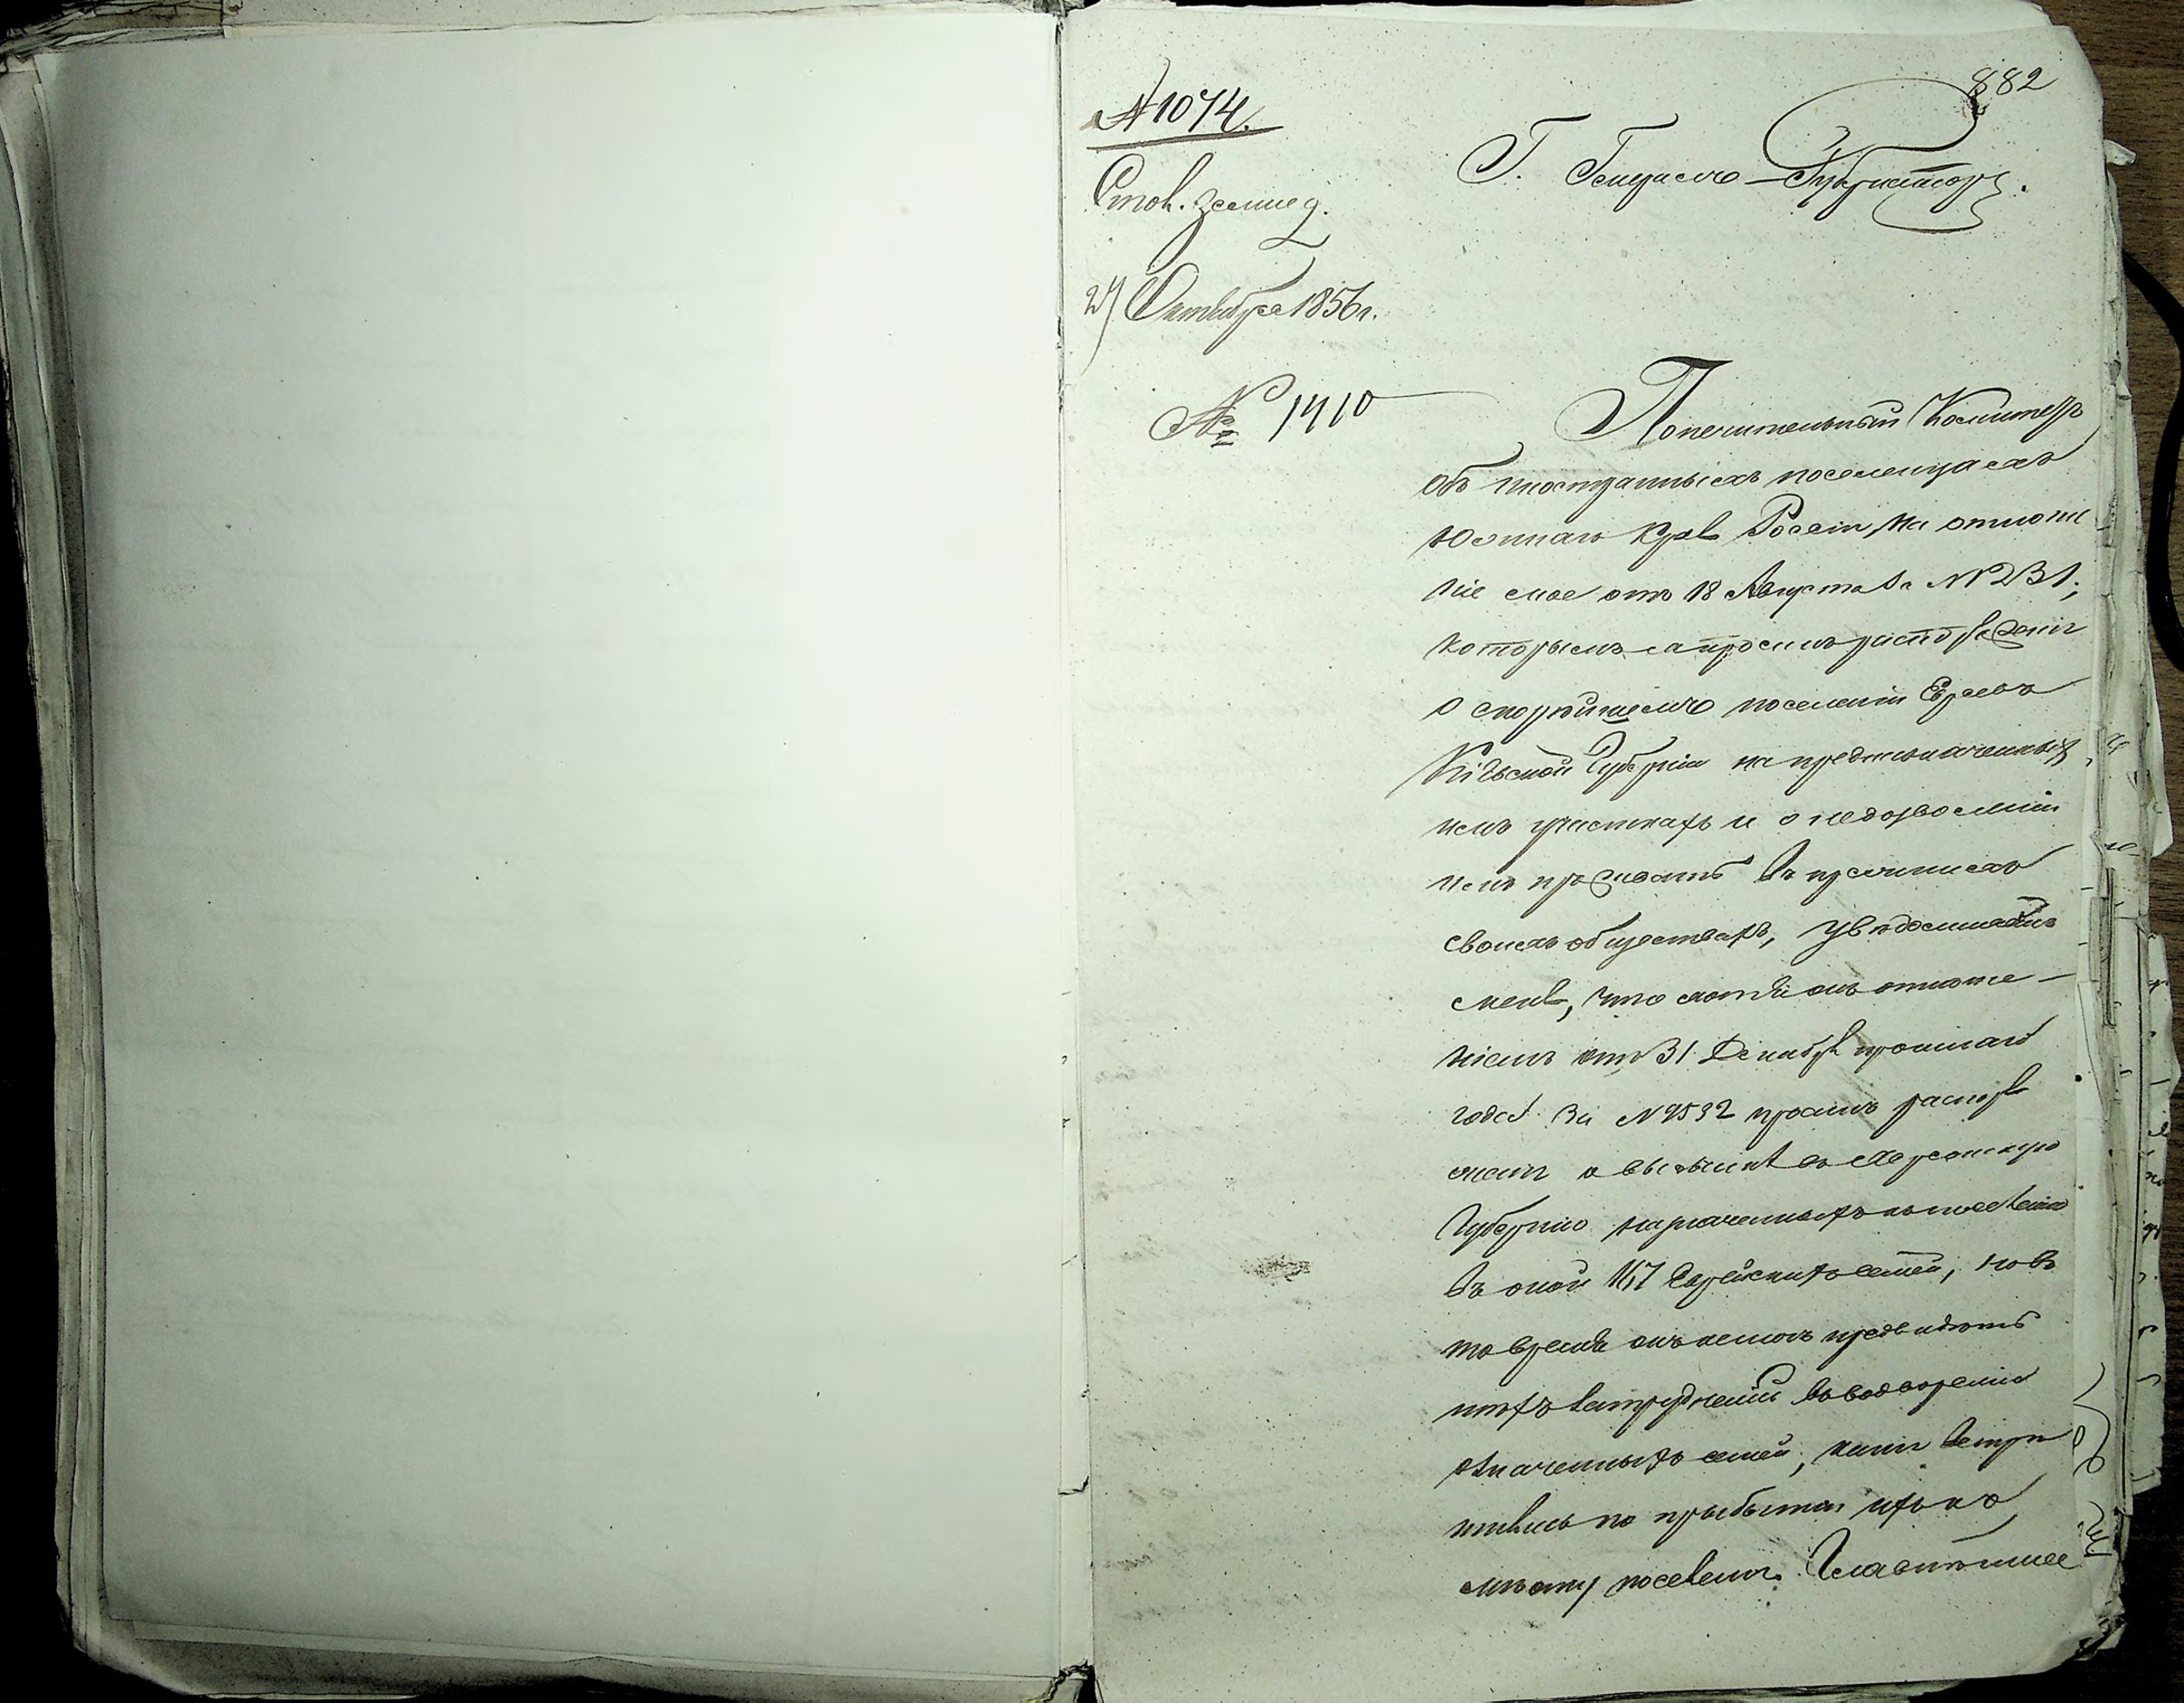 882
№ 1074.
Г. Генералъ-Губернатору.
27 Октября 1856 г.
№ 1410
Попечительный Комитетъ
объ иностранныхъ поселенцахъ
Южнаго края Россіи, на отноше
ніе мое отъ 18 Августа за № 231,
которымъ
о скорѣйшемъ поселеніи Евреевъ
Кіевской Губерніи на предназначенныхъ
имъ участкахъ и о недозволеніи
имъ проживать въ прежнихъ
своихъ обществахъ, увѣдомилъ
меня, что хотя онъ отноше-
ніемъ отъ 31 Декабря прошлаго
года за № 9532 просилъ распоря
женія о высылкѣ въ Херсонскую
Губернію назначенныхъ къ поселенію
въ оной 167 Еврейскихъ семей, но въ
то время онъ не могъ предвидѣть
тѣхъ затрудненій въ водвореніи
означенныхъ семей, какія встрѣ
тились по прибытіи ихъ къ
мѣсту поселенія. Главнѣйшее